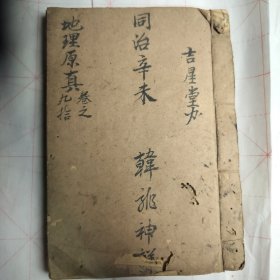 吉星堂
同治辛未
韓
神
地理原真
卷之
九拾